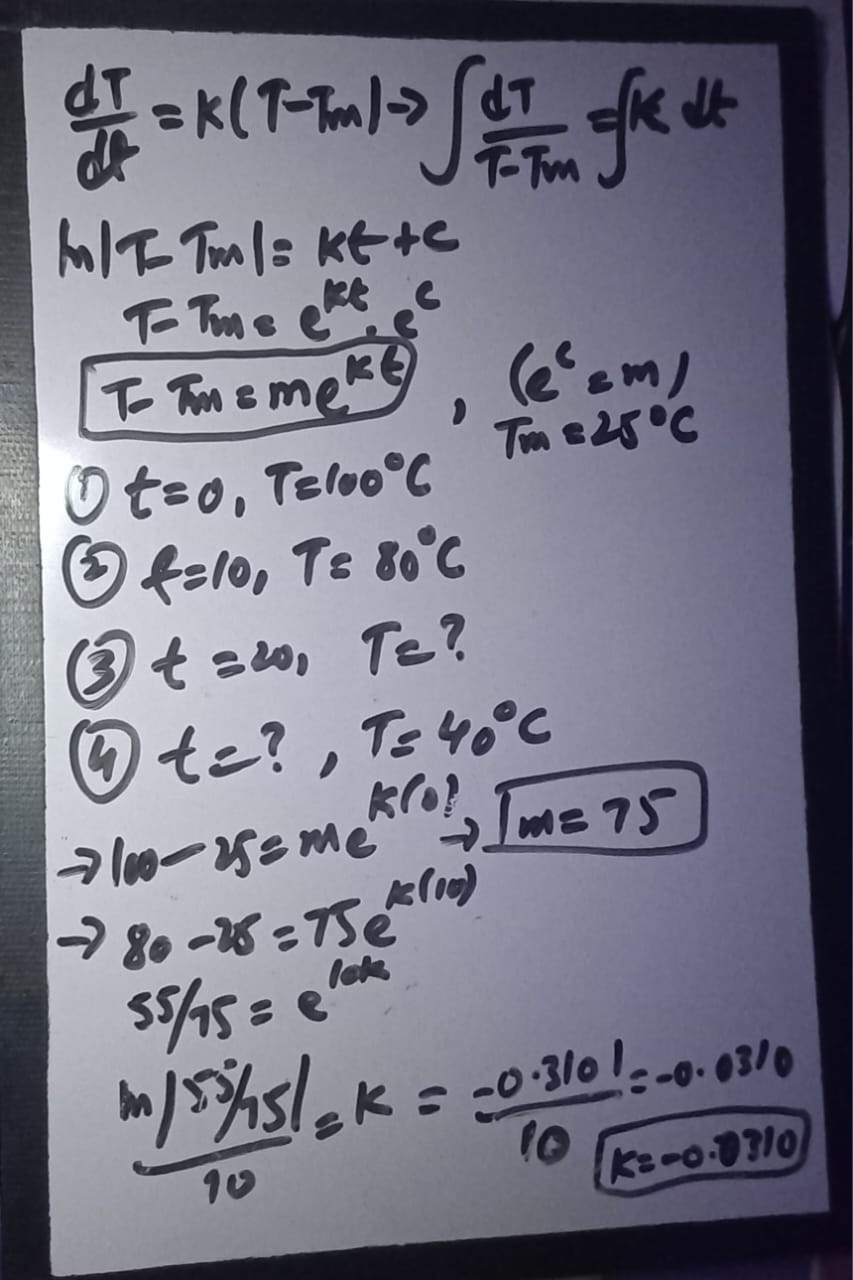 dT/dt = K(T-Tm) → ∫ dT/(T-Tm) = ∫K dt
ln|T-Tm| = Kt+c
T-Tm = e^Kt . e^c
T-Tm = me^Kt , (e^c = m)
Tm = 25°C
① t=0, T=100°C
② t=10, T= 80°C
③ t=20, T=?
④ t=?, T= 40°C
→ 100-25 = me^K(0) → m= 75
→ 80-25 = 75e^K(10)
55/75 = e^10k
ln|55/75|/10 = K = -0.3101/10 = -0.0310
K=-0.0310